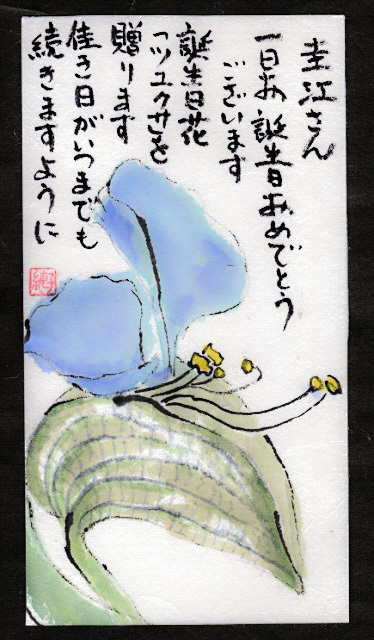 圭江さん
一日お誕生日おめでとう
ございます
誕生日花
ツユクサを
贈ります
佳き日がいつまでも
続きますように